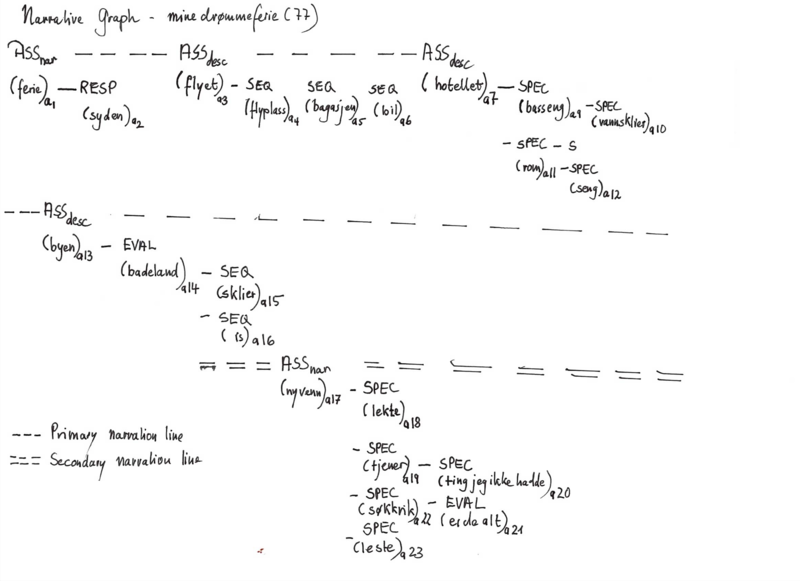 Narrative Graph - mine drømmeferie (77)
ASSnar - - - - ASSdesc - - - - - ASSdesc
(ferie)a1 — RESP (flyet)a3 - SEQ SEQ SEQ (hotellet)a7 — SPEC
(syden)a2 (flyplass)a4 (bagasjen)a5 (bil)a6 (basseng)a9 - SPEC
(vannsklier)a10
- SPEC - S
(rom)a11 - SPEC
(seng)a12
--- ASSdesc - - - - - - - - - -
(byen)a13 - EVAL
(badeland)a14 - SEQ
(sklier)a15
- SEQ
(is)a16
= = = ASSnar = = = = = = =
(ny venn)a17 - SPEC
(lekte)a18
--- Primary narration line
=== Secondary narration line
- SPEC
(tjener)a19 - SPEC
(ting jeg ikke hadde)a20
- SPEC - EVAL
(søkkrik)a22 (es da alt)a21
- SPEC
(leste)a23